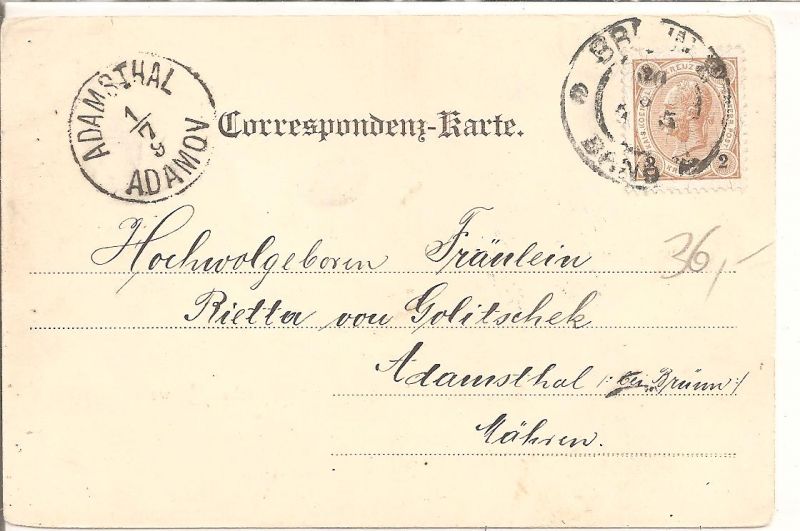 ADAMSTHAL
1/7 9
ADAMOV
BRÜNN
BRNO
2 2
Correspondenz-Karte.
36,-
Hochwolgeboren Fräulein
Rietta von Golitschek
Adamsthal /: bei Brünn :/
Mähren.